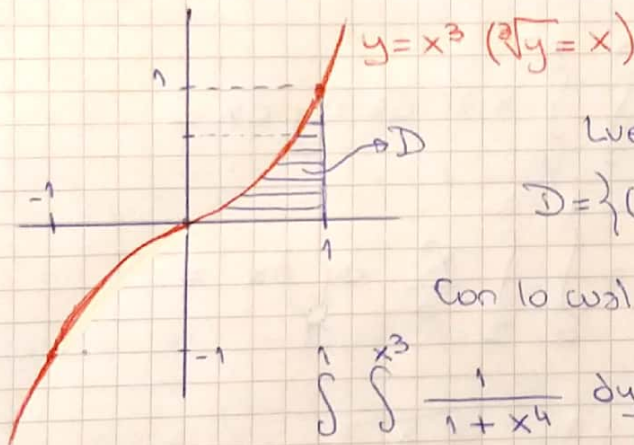 y = x³ (∛y = x)
1
D
-1
1
D = {(
Con lo cual
-1
1 x³
∫ ∫ 1/(1 + x⁴) dy